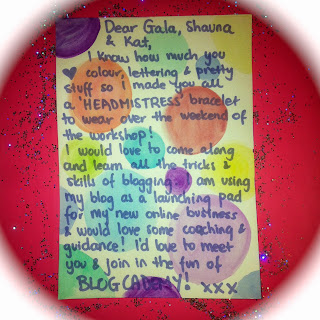 Dear Gala, Shauna
& Kat,
I know how much you
♥ colour, lettering & pretty
stuff so I made you all
a 'HEADMISTRESS' bracelet
to wear over the weekend of
the workshop!
I would love to come along
and learn all the tricks &
skills of blogging. I am using
my blog as a launching pad
for my new online business
& would love some coaching &
guidance! I'd love to meet
you & join in the fun of
BLOGCADEMY! xxx